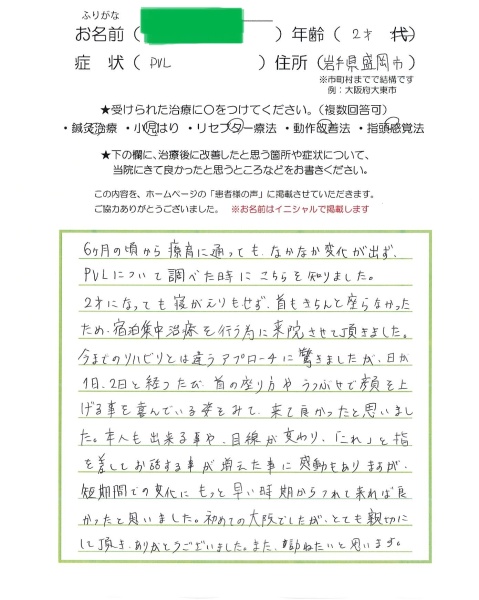 ふりがな
お名前（　　　）年齢（ 2才 代）
症　状（ PVL　　　）住所（岩手県盛岡市）
※市町村までで結構です
例：大阪府大東市
★受けられた治療に〇をつけてください。（複数回答可）
・鍼灸治療 ・小児はり ・リセプター療法 ・動作改善法 ・指頭感覚法
★下の欄に、治療後に改善したと思う箇所や症状について、
当院にきて良かったと思うところなどをお書きください。
この内容を、ホームページの「患者様の声」に掲載させていただきます。
ご協力ありがとうございました。 ※お名前はイニシャルで掲載します
6ヶ月の頃から療育に通っても、なかなか変化が出ず、
PVLについて調べた時にこちらを知りました。
2才になっても寝がえりもせず、首もきちんと座らなかった
ため、宿泊集中治療を行う為に来院させて頂きました。
今までのリハビリとは違うアプローチに驚きましたが、日が
1日、2日と経つたび、首の座り方や うつぶせで顔を上
げる事を喜んでいる姿をみて、来て良かったと思いまし
た。本人も出来る事や、目線が変わり、「これ」と指
を差してお話する事が増えた事に感動もありますが、
短期間での変化に もっと早い時期からつれて来れば良
かったと思いました。初めての大阪でしたが、とても親切に
して頂き、ありがとうございました。また、訪ねたいと思います。